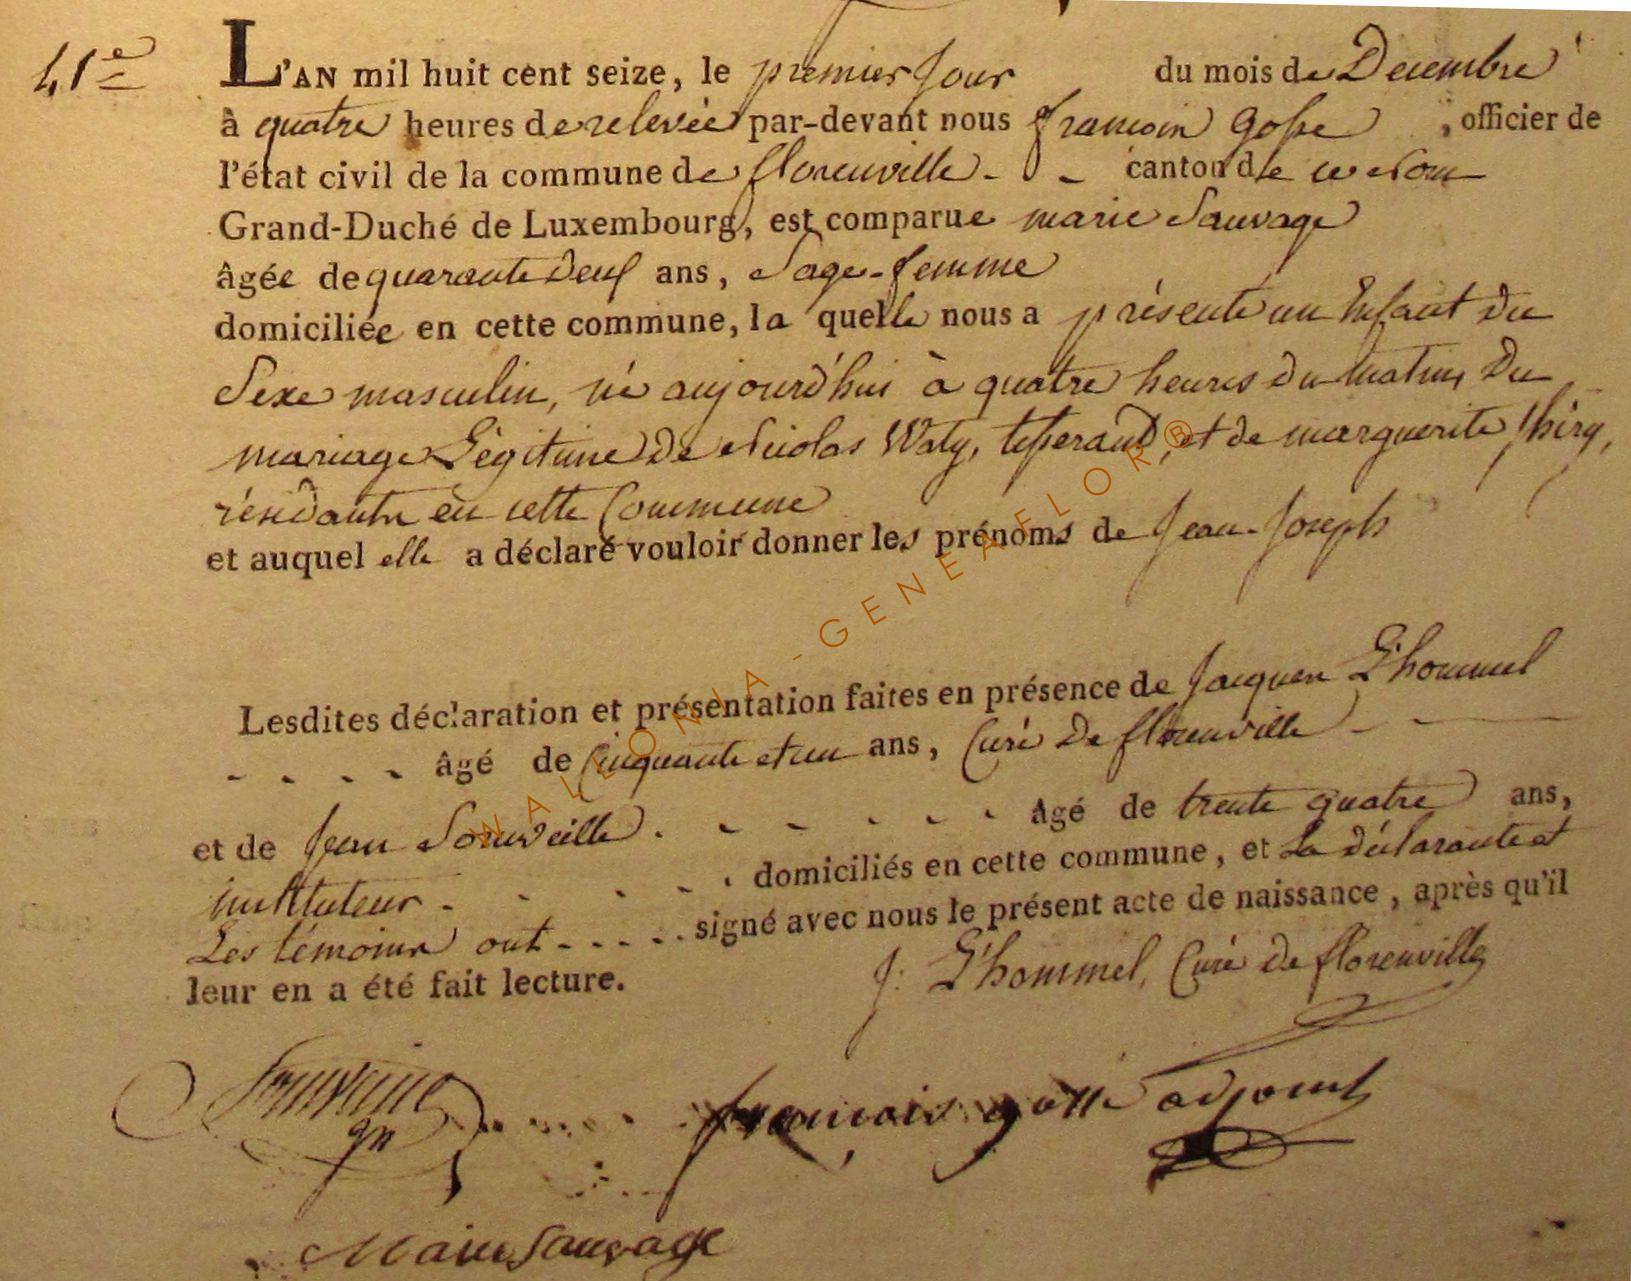 41e
L'AN mil huit cent seize, le premier Jour du mois de Decembre
à quatre heures de relevée par-devant nous françois Gosse, officier de
l'état civil de la commune de florenville - - canton de
Grand-Duché de Luxembourg, est comparue marie Sauvage
âgée de quarante deux ans, Sage-femme
domiciliée en cette commune, la quelle nous a présenté un Enfant du
Sexe masculin, né aujourd'hui à quatre heures du matin, Du
mariage Légitime De Nicolas Waty, tisserand, et de marguerite thiry,
résidants en cette Commune
et auquel elle a déclaré vouloir donner les prénoms de Jean-Joseph
Lesdites déclaration et présentation faites en présence de Jacques L'hommel
- - - - âgé de Cinquante et un ans, Curé De florenville - -
et de Jean . - - - - - âgé de trente quatre ans,
instituteur - - - - . domiciliés en cette commune, et La déclarante et
Les témoins ont - - - - - signé avec nous le présent acte de naissance, après qu'il
leur en a été fait lecture.
J: L'hommel, Curé De florenville
françois gosse adjoint
Marie Sauvage
WALLONIA-GENEAFLOR®